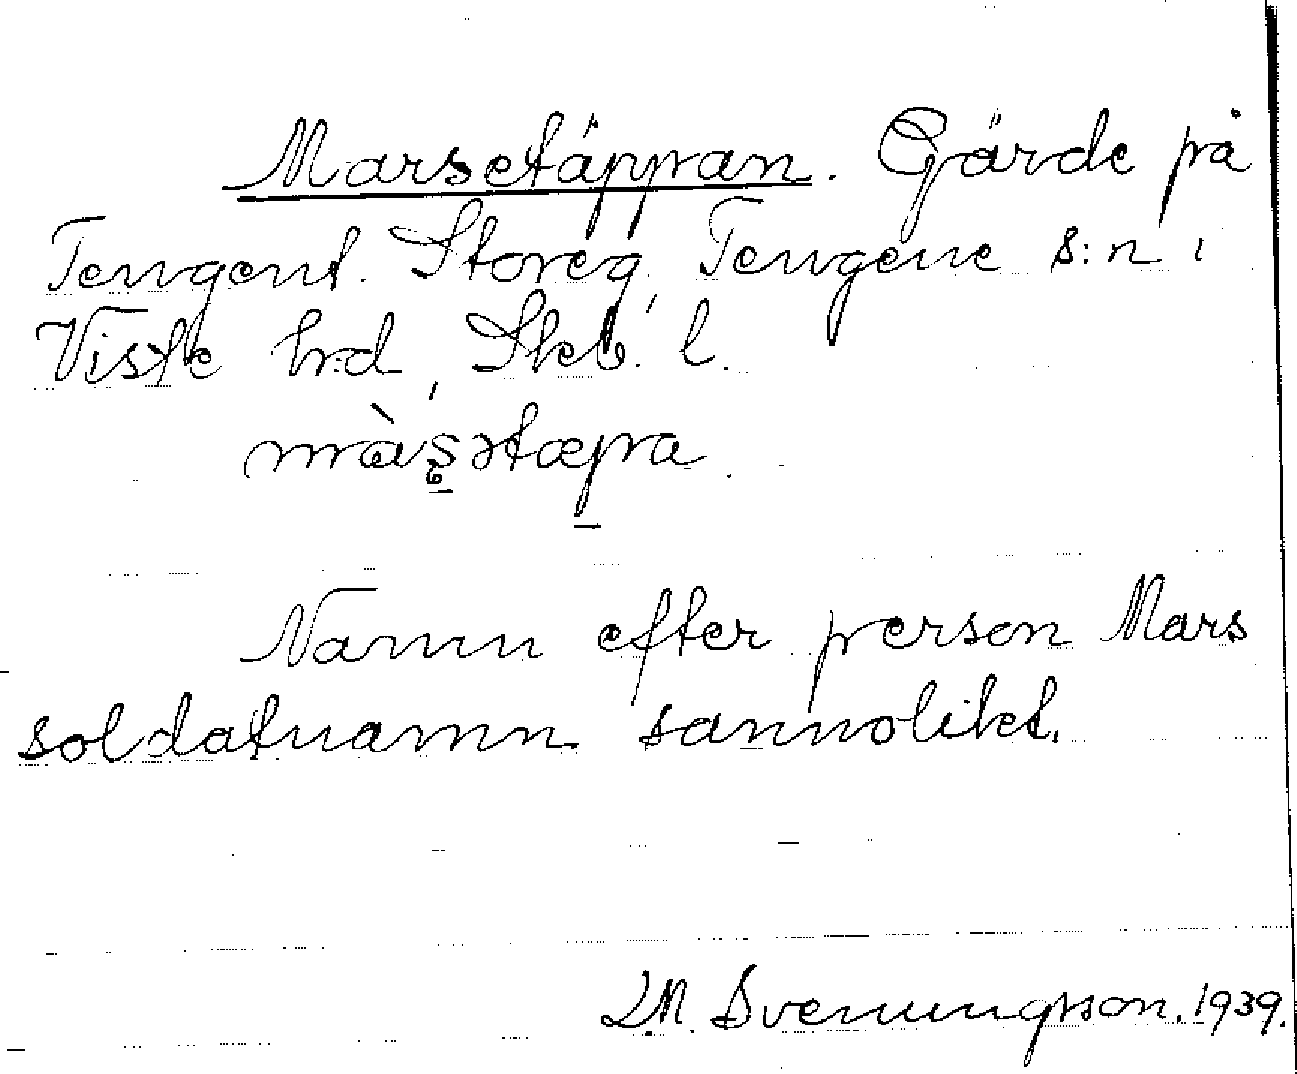 Marsetäppan. Gärde på
Tengent. Storeg, Tengene s:n i
Viste hd, Skb. l.
màṣətæpa.
Namn efter person Mars
soldatnamn sannolikt.
D.M. Svenungsson. 1939.